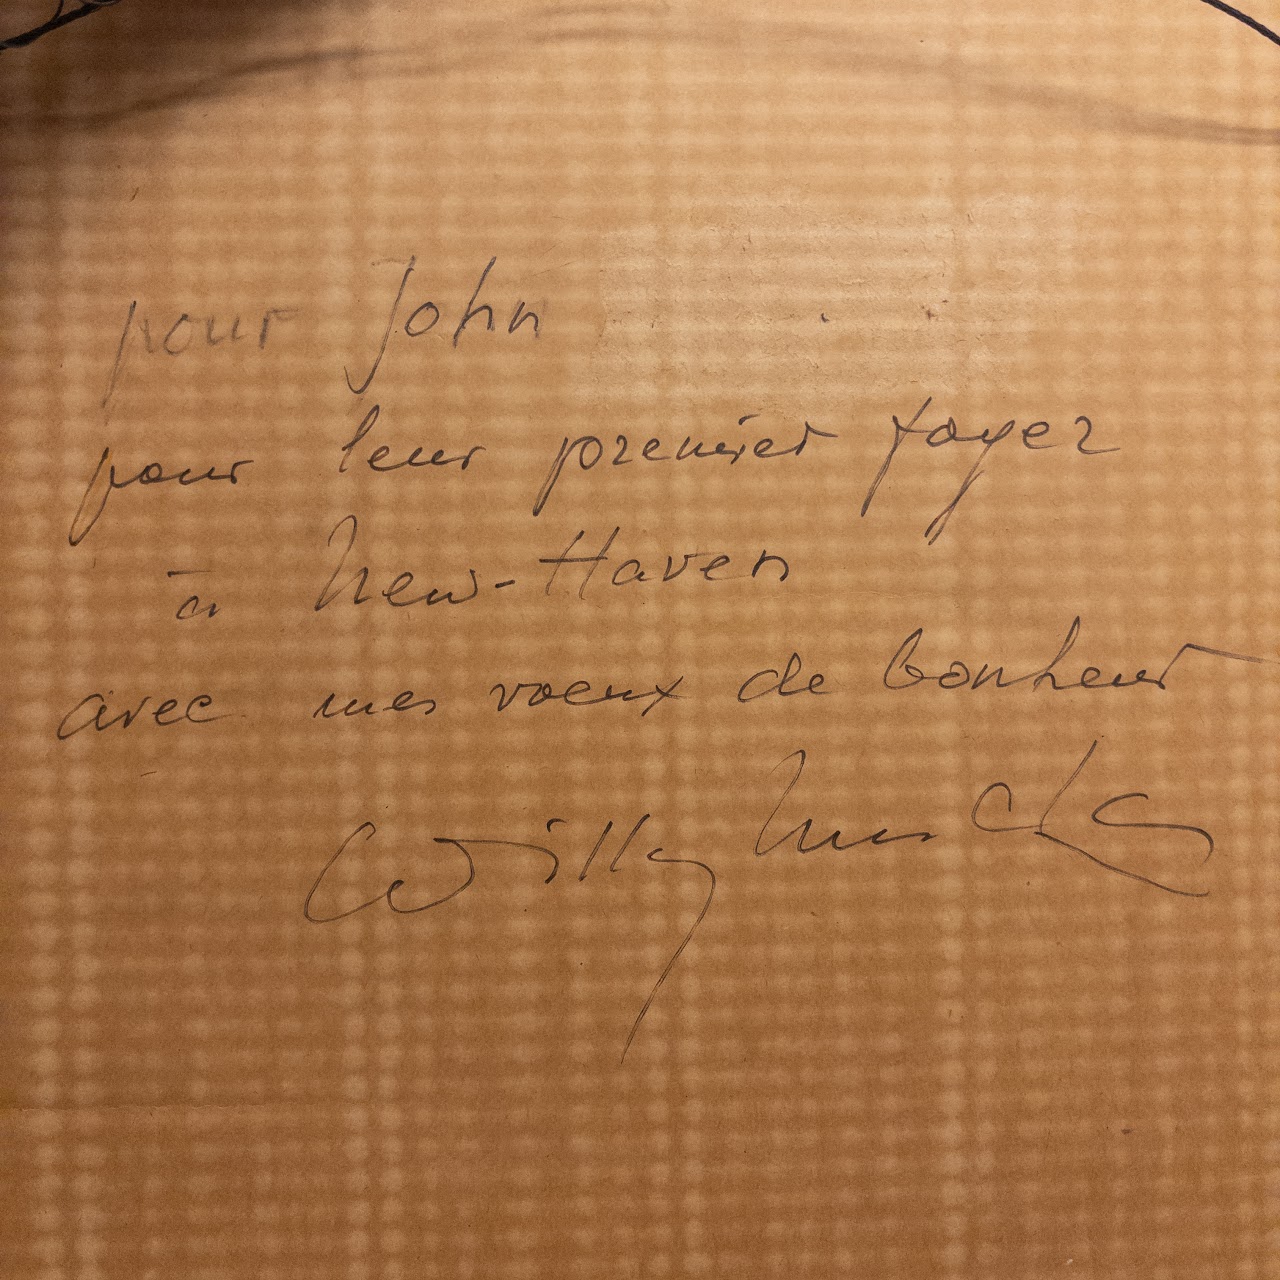 pour John
pour leur premier foyer
à New-Haven
avec mes voeux de bonheur
Willy Mucha